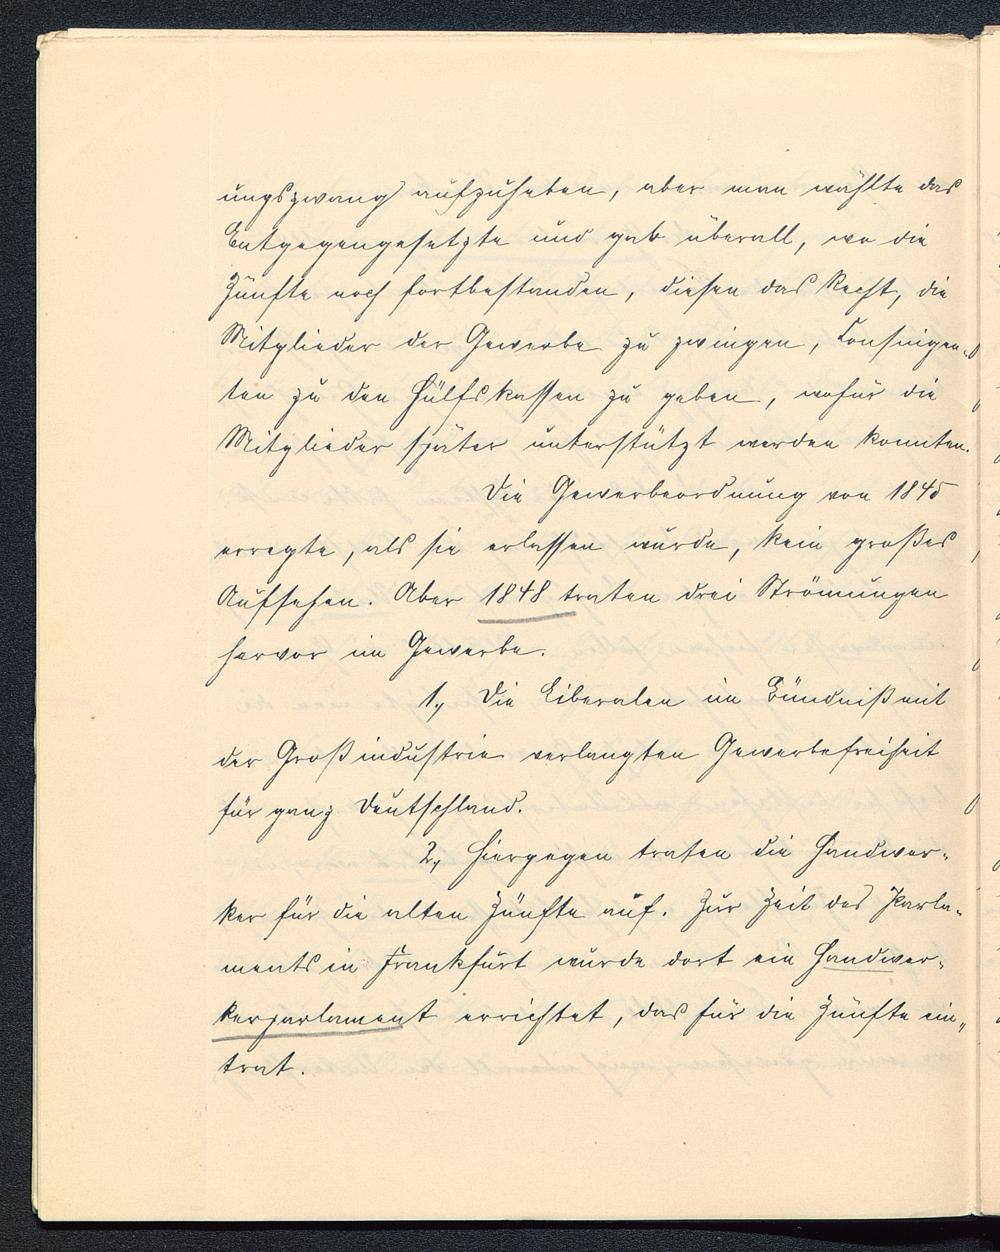 ungszwang aufzuheben, aber man wählte das
Entgegengesetzte und gab überall, wo die
Zünfte noch fortbestanden, diesen das Recht, die
Mitglieder der Gewerbe zu zwingen,
ten zu den Hülfskassen zu geben, wofür die
Mitglieder später unterstützt werden konnten.
Die Gewerbeordnung von 1845
erregte, als sie erlassen wurde, kein großes
Aufsehen. Aber 1848 traten drei Strömungen
hervor im Gewerbe.
1., Die Liberalen im Bündniß mit
der Großindustrie verlangten Gewerbefreiheit
für ganz Deutschland.
2., Hiergegen traten die Handwer-
ker für die alten Zünfte auf. Zur Zeit des Parla-
ments in Frankfurt wurde dort ein Handwer-
kerparlament errichtet, das für die Zünfte ein-
trat.